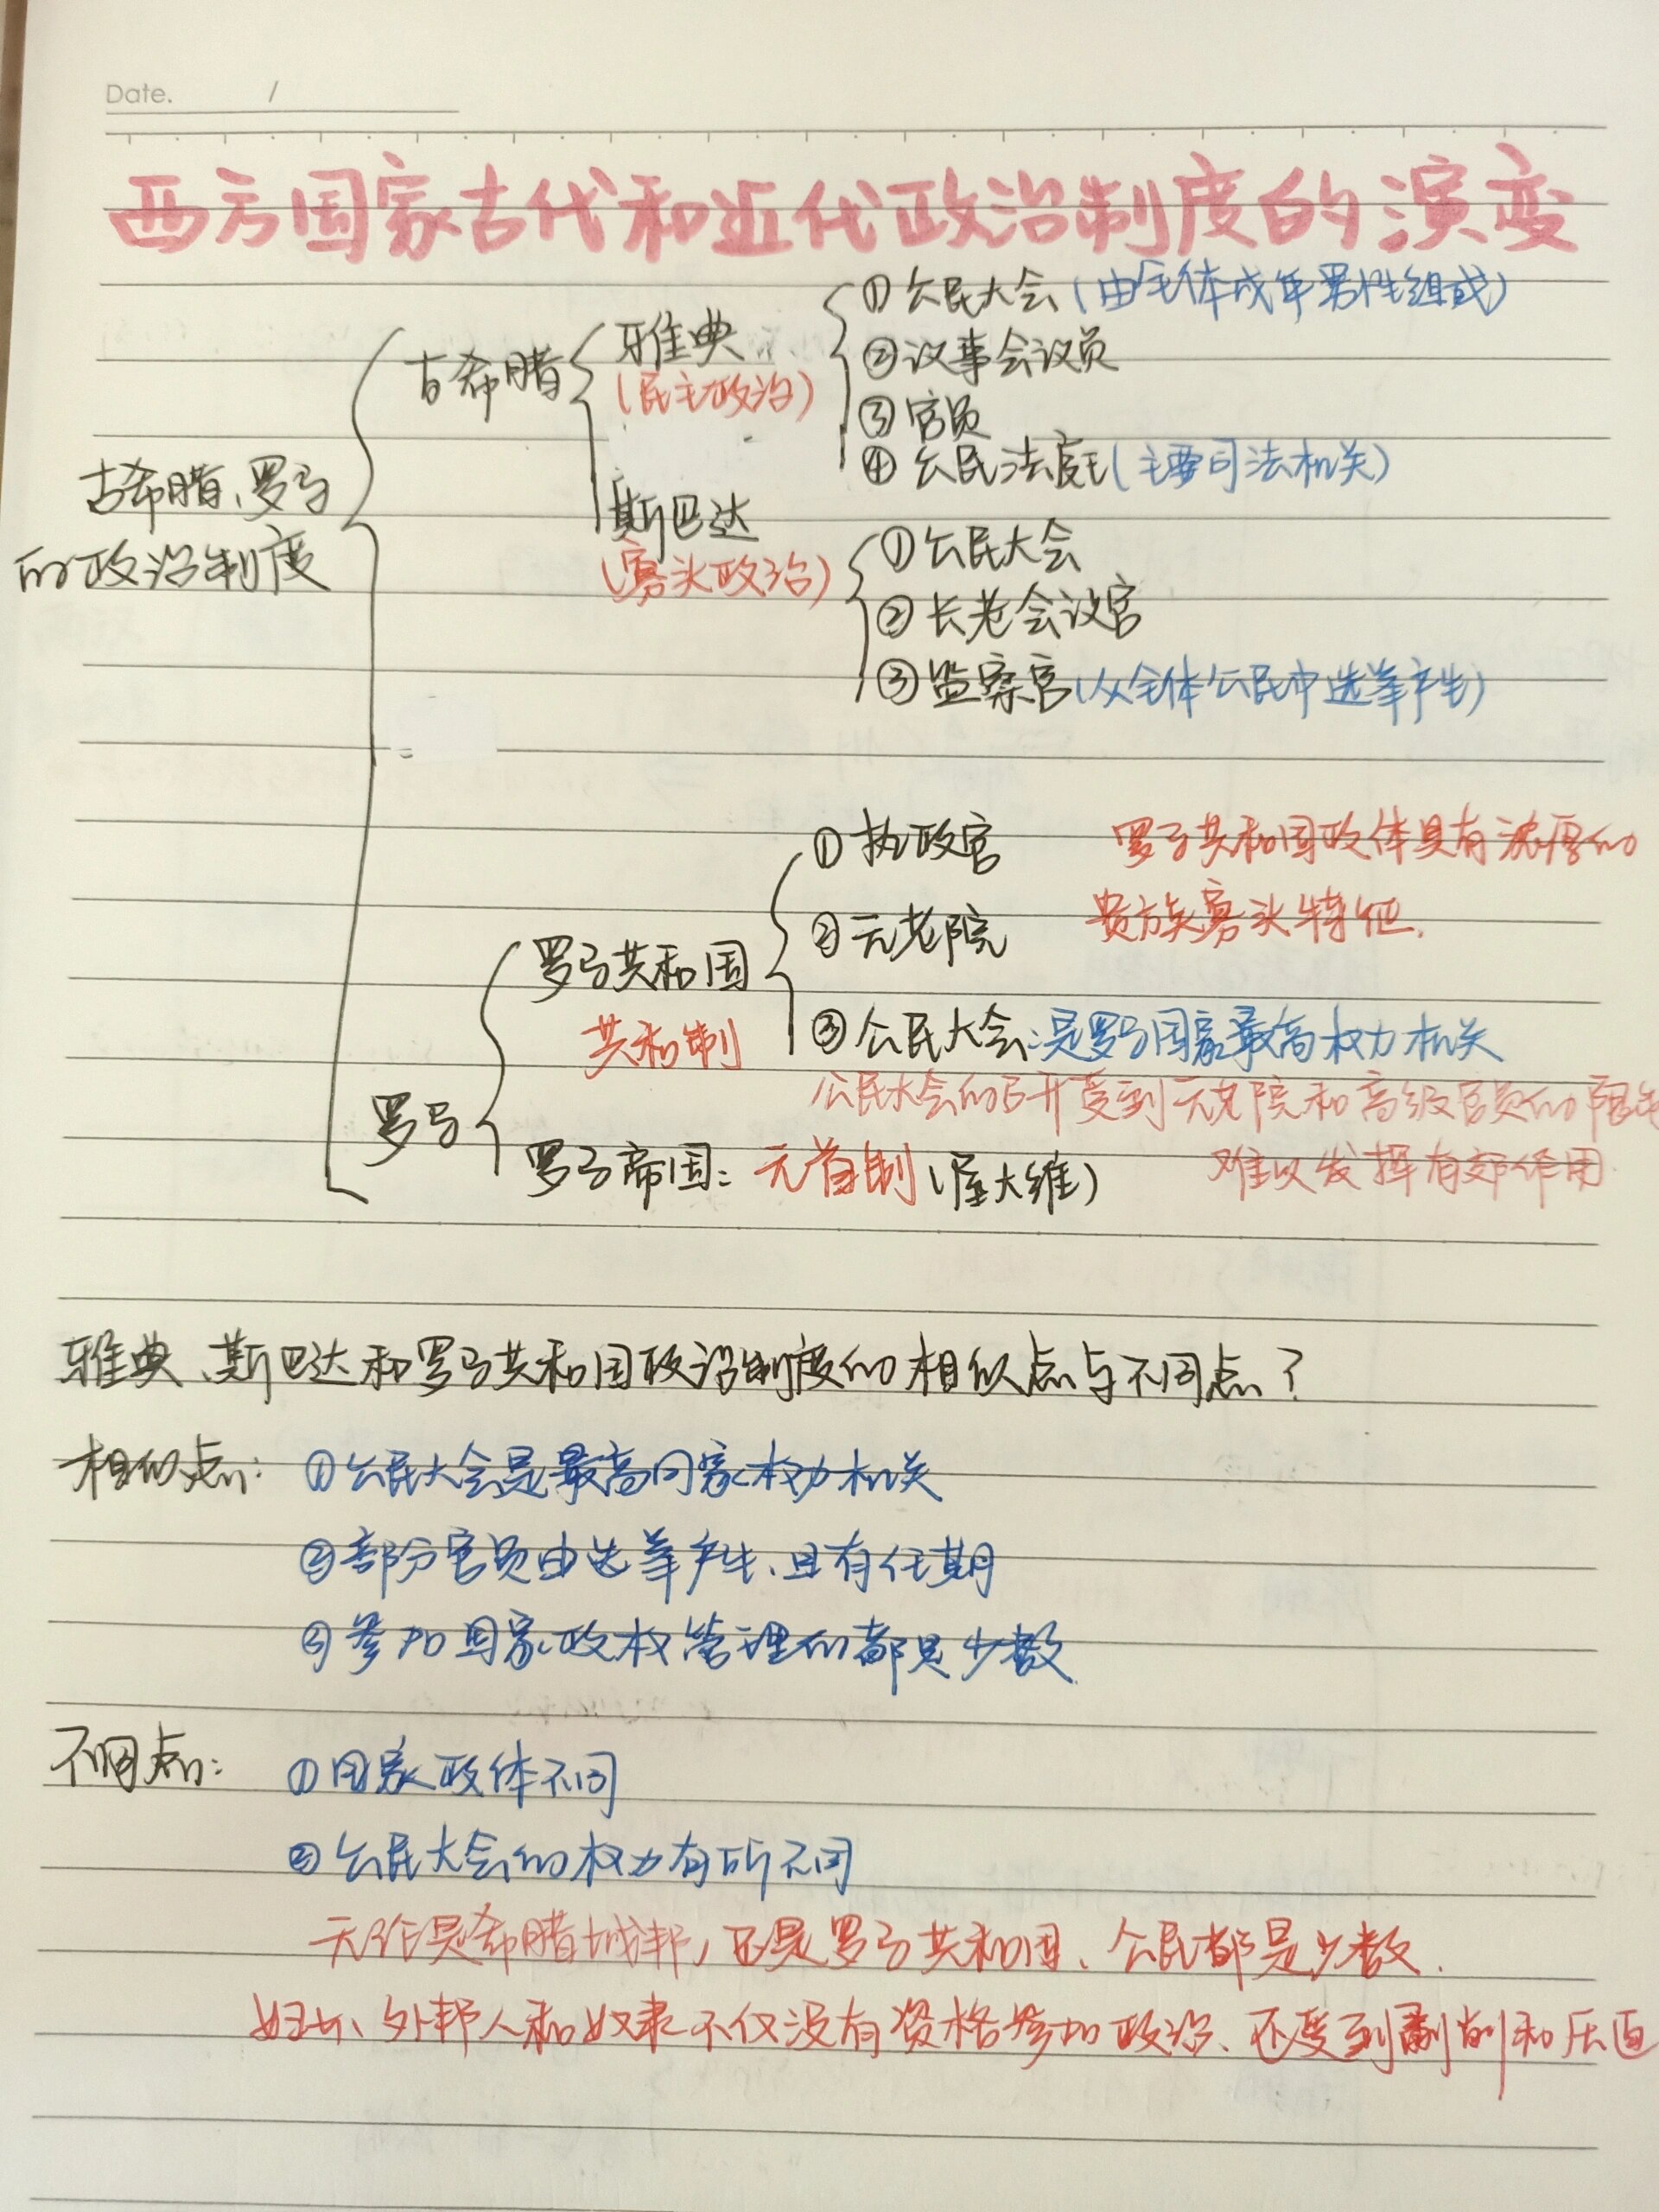 Date. /
西方国家古代和近代政治制度的演变
古希腊、罗马
的政治制度
古希腊
雅典
(民主政治)
①公民大会(由全体成年男性组成)
②议事会议员
③官员
④公民法庭(主要司法机关)
斯巴达
(寡头政治)
①公民大会
②长老会议官
③监察官(从全体公民中选举产生)
罗马
罗马共和国
共和制
①执政官
②元老院
罗马共和国政体具有浓厚的
贵族寡头特征.
③公民大会:是罗马国家最高权力机关
公民大会的召开受到元老院和高级官员的限制
难以发挥有效作用.
罗马帝国:元首制(屋大维)
雅典、斯巴达和罗马共和国政治制度的相似点与不同点?
相似点: ①公民大会是最高国家权力机关
②部分官员由选举产生、且有任期
③参加国家政权管理的都是少数
不同点: ①国家政体不同
②公民大会的权力有所不同
无论是希腊城邦,还是罗马共和国、公民都是少数.
妇女、外邦人和奴隶不仅没有资格参加政治、还受到剥削和压迫